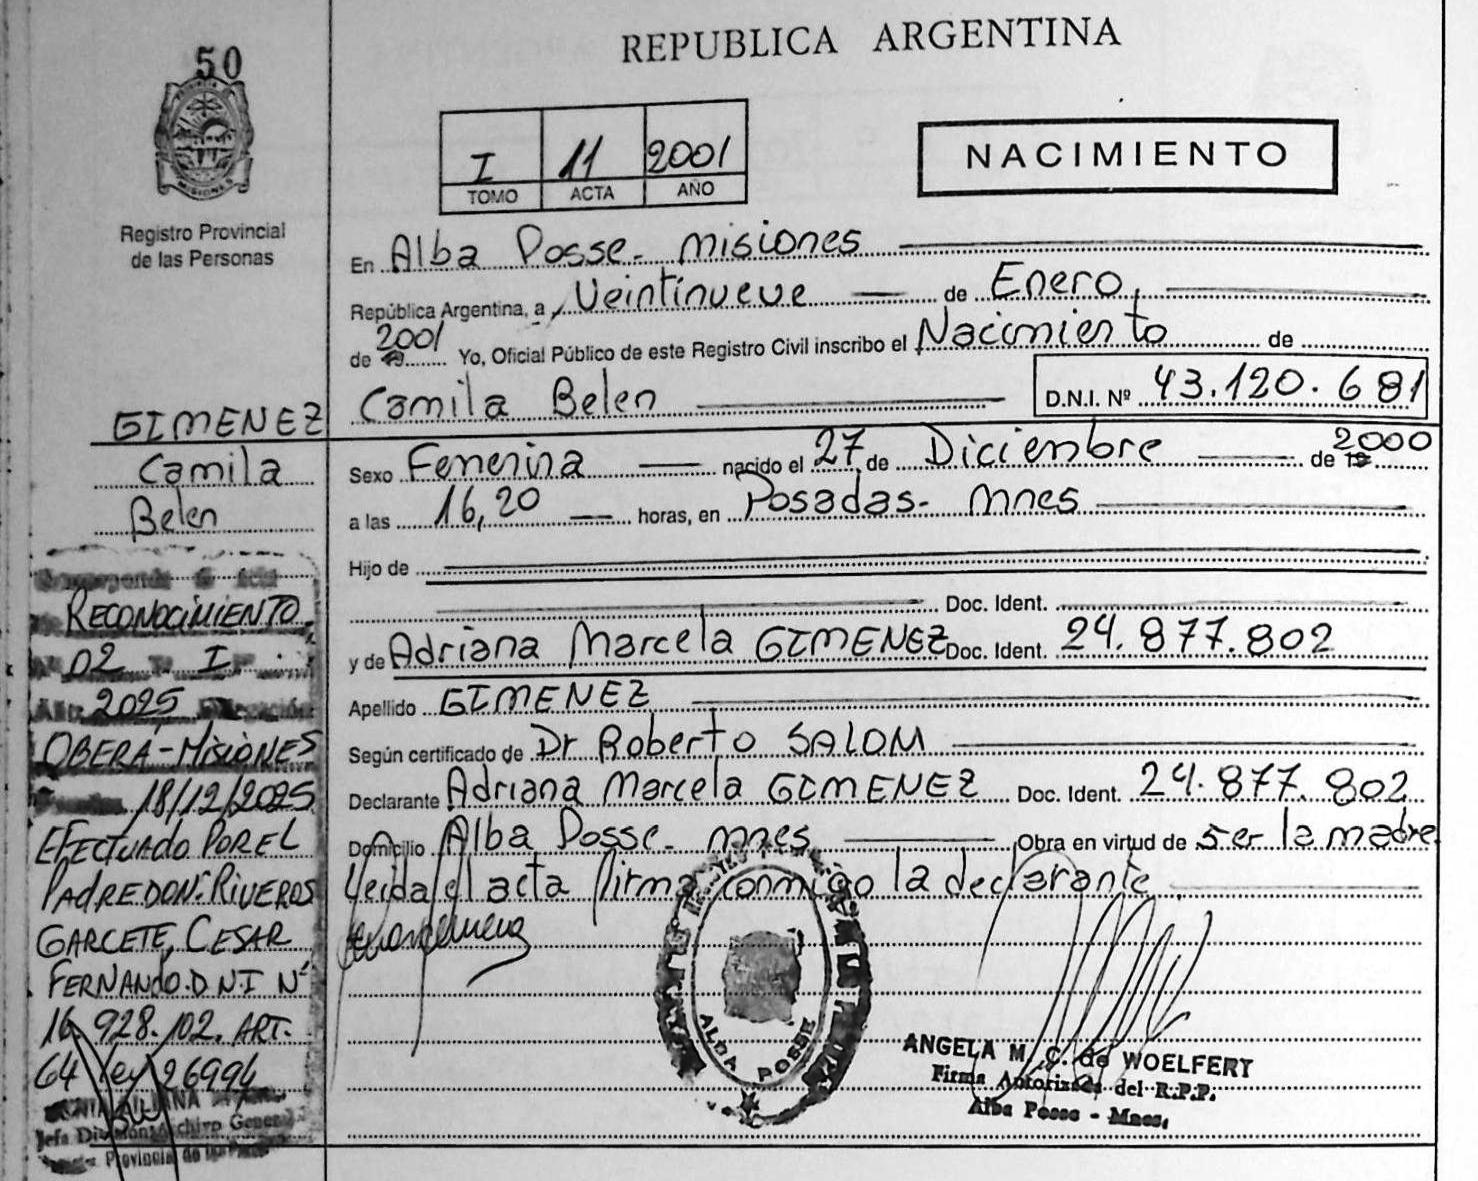 REPUBLICA ARGENTINA
50
PROVINCIA DE
MISIONES
Registro Provincial
de las Personas
I 11 2001
TOMO ACTA AÑO
NACIMIENTO
En Alba Posse - Misiones
República Argentina, a Veintinueve de Enero
de 2001 Yo, Oficial Público de este Registro Civil inscribo el Nacimiento de
Camila Belen D.N.I. Nº 43.120.681
Sexo Femenina nacido el 27 de Diciembre de 2000
a las 16,20 horas, en Posadas - Mnes
Hijo de
Doc. Ident.
y de Adriana Marcela GIMENEZ Doc. Ident. 24.877.802
Apellido GIMENEZ
Según certificado de Dr Roberto SALOM
Declarante Adriana Marcela GIMENEZ Doc. Ident. 24.877.802
Domicilio Alba Posse - Mnes Obra en virtud de ser la madre
Leida el acta firma conmigo la declarante
ALBA POSSE
ANGELA M. C. de WOELFERT
Firma Autorizada del R.P.P.
Alba Posse - Mnes.
GIMENEZ
Camila
Belen
Corresponde a acta
RECONOCIMIENTO
Nº 02 Tº I
Año 2025 Delegación
OBERÁ - MISIONES
18/12/2025
EFECTUADO POR EL
PADRE DON: RIVEROS
GARCETE, CESAR
FERNANDO. D N I Nº
16.928.102. ART.
64 Ley 26994
Jefa División Archivo General
Provincial de las